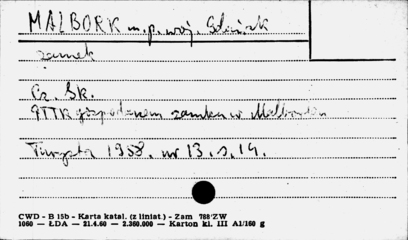 MALBORK m.p. woj. Gdańsk
zamek
Cz. Sk.
PTTK gospodarzem zamku w Malborku
Turysta 1958. nr 13. s. 14.
CWD - B 15b - Karta katal. (z liniat.) - Zam 788/ZW
1060 — ŁDA — 21.4.60 — 2.360.000 — Karton kl. III A1/160 g